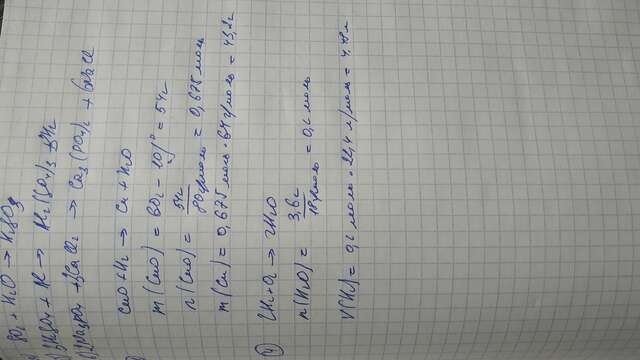 SO₂ + H₂O → H₂SO₃
3H₂SO₄ + Al → Al₂(SO₄)₃ + 3H₂
2Na₃PO₄ + 3CaCl₂ → Ca₃(PO₄)₂ + 6NaCl
CuO + H₂ → Cu + H₂O
m(CuO) = 60г - 10% = 54г
n(CuO) = 54г / 80г/моль = 0,675 моль
m(Cu) = 0,675 моль · 64 г/моль = 43,2г
2H₂ + O₂ → 2H₂O
n(H₂O) = 3,6г / 18г/моль = 0,2 моль
V(H₂) = 0,2 моль · 22,4 л/моль = 4,48 л